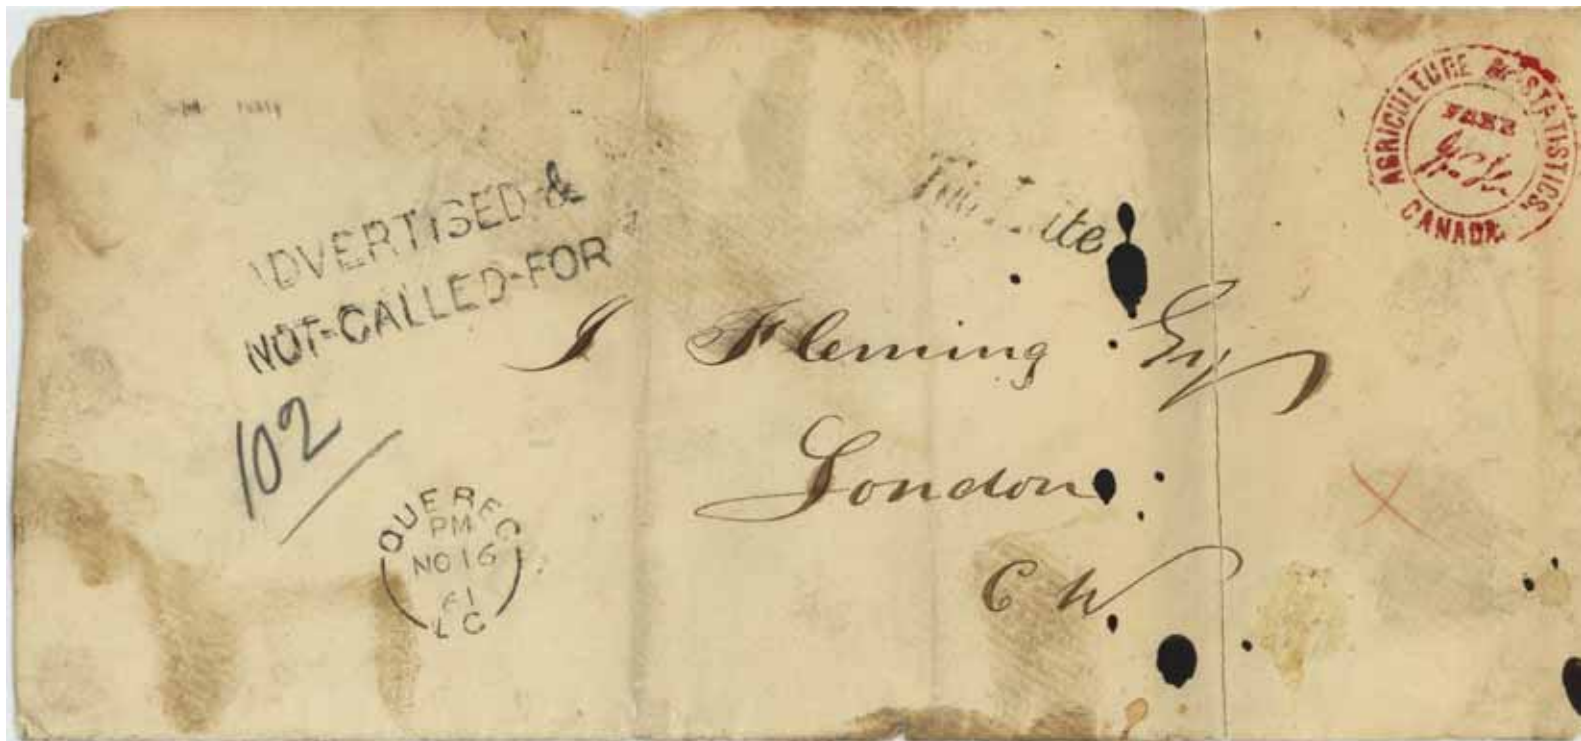 AGRICULTURE & STATISTICS,
FREE
CANADA.
ADVERTISED &
NOT-CALLED-FOR
J Fleming Esq
London
C W.
102
QUEBEC
PM
NO 16
61
L C